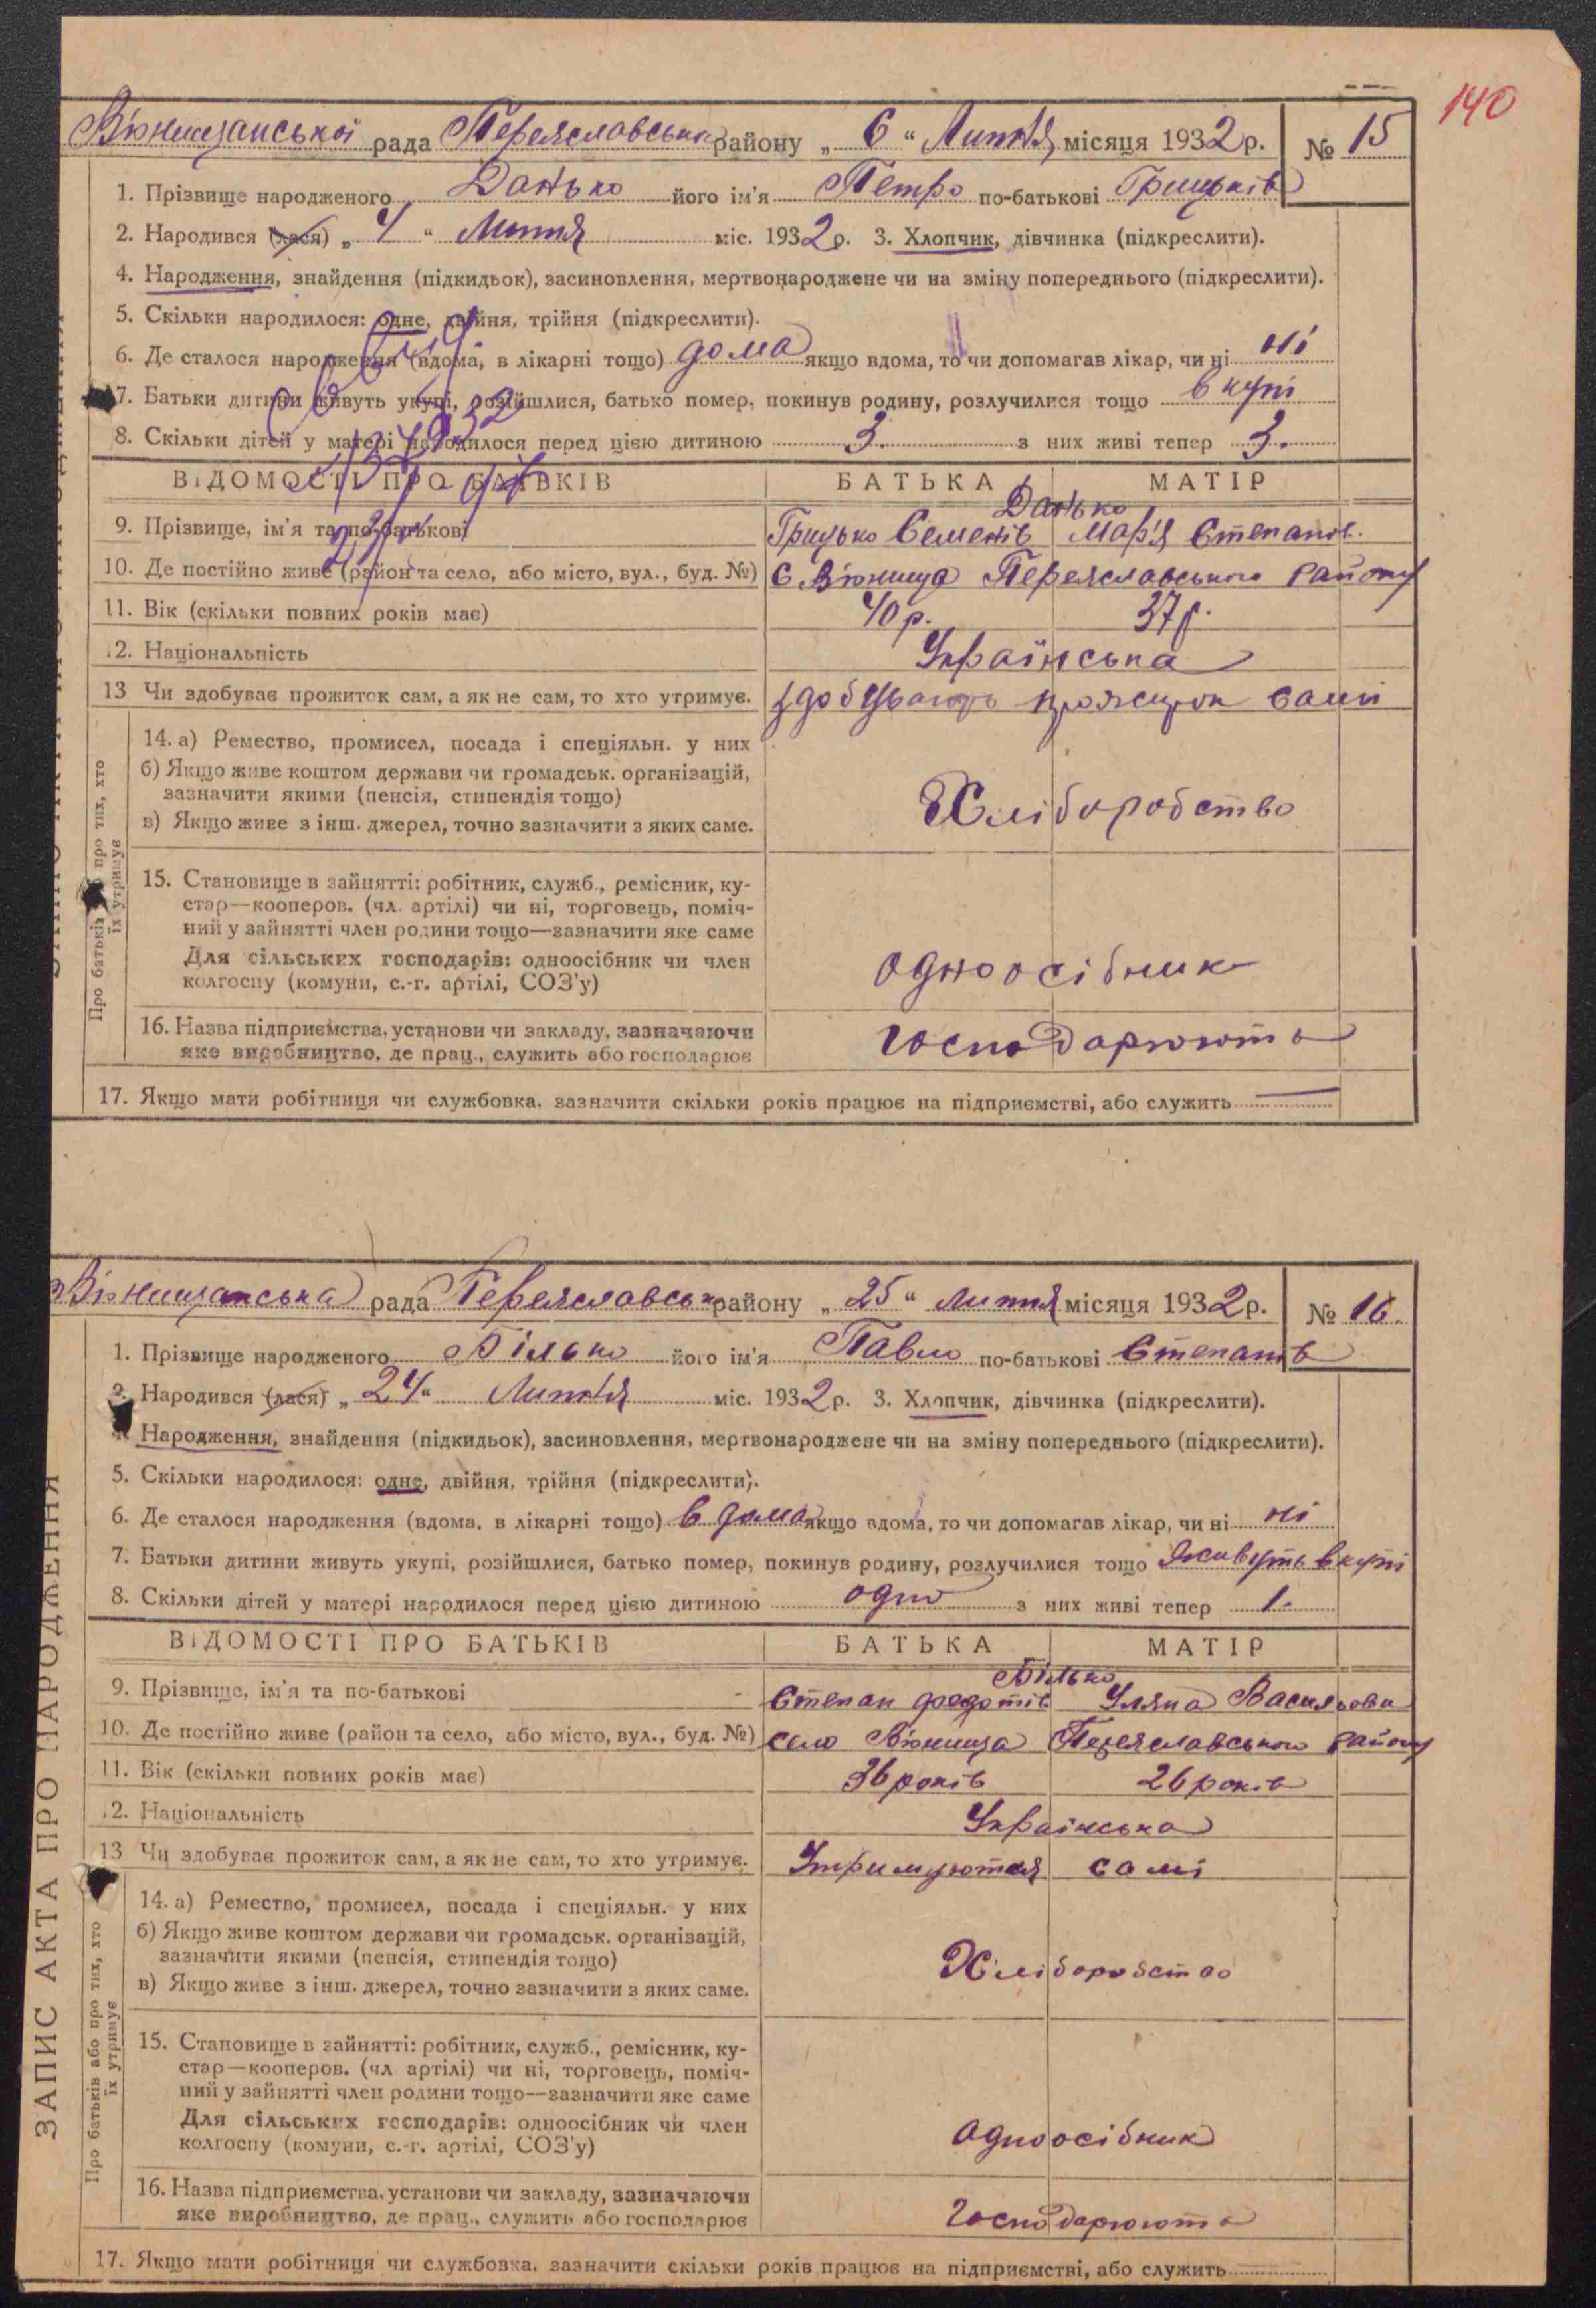 140
Вюнищанської рада Переяславськ району „ 6 “ Липня місяця 1932 р. № 15
1. Прізвище народженого Данько його ім'я Петро по-батькові Грицьків
2. Народився (лася) „ 4 “ Липня міс. 1932 р. 3. Хлопчик, дівчинка (підкреслити).
4. Народження, знайдення (підкидьок), засиновлення, мертвонароджене чи на зміну попереднього (підкреслити).
5. Скільки народилося: одне, двійня, трійня (підкреслити).
6. Де сталося народження (вдома, в лікарні тощо) дома якщо вдома, то чи допомагав лікар, чи ні ні
7. Батьки дитини живуть укупі, розійшлися, батько помер, покинув родину, розлучилися тощо вкупі
8. Скільки дітей у матері народилося перед цією дитиною 3. з них живі тепер 3.
ВІДОМОСТІ ПРО БАТЬКІВ БАТЬКА МАТІР
Данько
9. Прізвище, ім'я та по-батькові Грицько Семенів Мар'я Степанов.
10. Де постійно живе (район та село, або місто, вул., буд. №) С Вюнища Переяславського району
11. Вік (скільки повних років має) 40 р. 37 р.
12. Національність Українська
13 Чи здобуває прожиток сам, а як не сам, то хто утримує. здобувають прожиток самі
Про батьків або про тих, хто їх утримує
14. а) Ремество, промисел, посада і спеціяльн. у них
б) Якщо живе коштом держави чи громадськ. організацій,
зазначити якими (пенсія, стипендія тощо)
Хліборобство
в) Якщо живе з інш. джерел, точно зазначити з яких саме.
15. Становище в зайнятті: робітник, служб., ремісник, ку-
стар—кооперов. (чл. артілі) чи ні, торговець, поміч-
ний у зайнятті член родини тощо—зазначити яке саме
Для сільських господарів: одноосібник чи член
колгоспу (комуни, с.-г. артілі, СОЗ'у) одноосібник
16. Назва підприємства, установи чи закладу, зазначаючи
яке виробництво, де прац., служить або господарює господарюють
17. Якщо мати робітниця чи службовка, зазначити скільки років працює на підприємстві, або служить —
ЗАПИС АКТА ПРО НАРОДЖЕННЯ
Вюнищанська рада Переяславськ району „ 25 “ Липня місяця 1932 р. № 16.
1. Прізвище народженого Білько його ім'я Павло по-батькові Степанів
2. Народився (лася) „ 24 “ Липня міс. 1932 р. 3. Хлопчик, дівчинка (підкреслити).
4. Народження, знайдення (підкидьок), засиновлення, мертвонароджене чи на зміну попереднього (підкреслити).
5. Скільки народилося: одне, двійня, трійня (підкреслити).
6. Де сталося народження (вдома, в лікарні тощо) в дома якщо вдома, то чи допомагав лікар, чи ні ні
7. Батьки дитини живуть укупі, розійшлися, батько помер, покинув родину, розлучилися тощо живуть вкупі
8. Скільки дітей у матері народилося перед цією дитиною одно з них живі тепер 1.
ВІДОМОСТІ ПРО БАТЬКІВ БАТЬКА МАТІР
Білько
9. Прізвище, ім'я та по-батькові Степан Федотів Уляна Васильовна
10. Де постійно живе (район та село, або місто, вул., буд. №) село Вюнища Переяславського району
11. Вік (скільки повних років має) 36 років 26 років
12. Національність Українська
13 Чи здобуває прожиток сам, а як не сам, то хто утримує. Утримуются самі
Про батьків або про тих, хто їх утримує
14. а) Ремество, промисел, посада і спеціяльн. у них
б) Якщо живе коштом держави чи громадськ. організацій,
зазначити якими (пенсія, стипендія тощо)
Хліборобство
в) Якщо живе з інш. джерел, точно зазначити з яких саме.
15. Становище в зайнятті: робітник, служб., ремісник, ку-
стар—кооперов. (чл артілі) чи ні, торговець, поміч-
ний у зайнятті член родини тощо—зазначити яке саме
Для сільських господарів: одноосібник чи член
колгоспу (комуни, с.-г. артілі, СОЗ'у) одноосібник
16. Назва підприємства, установи чи закладу, зазначаючи
яке виробництво, де прац., служить або господарює господарюють
17. Якщо мати робітниця чи службовка, зазначити скільки років працює на підприємстві, або служить